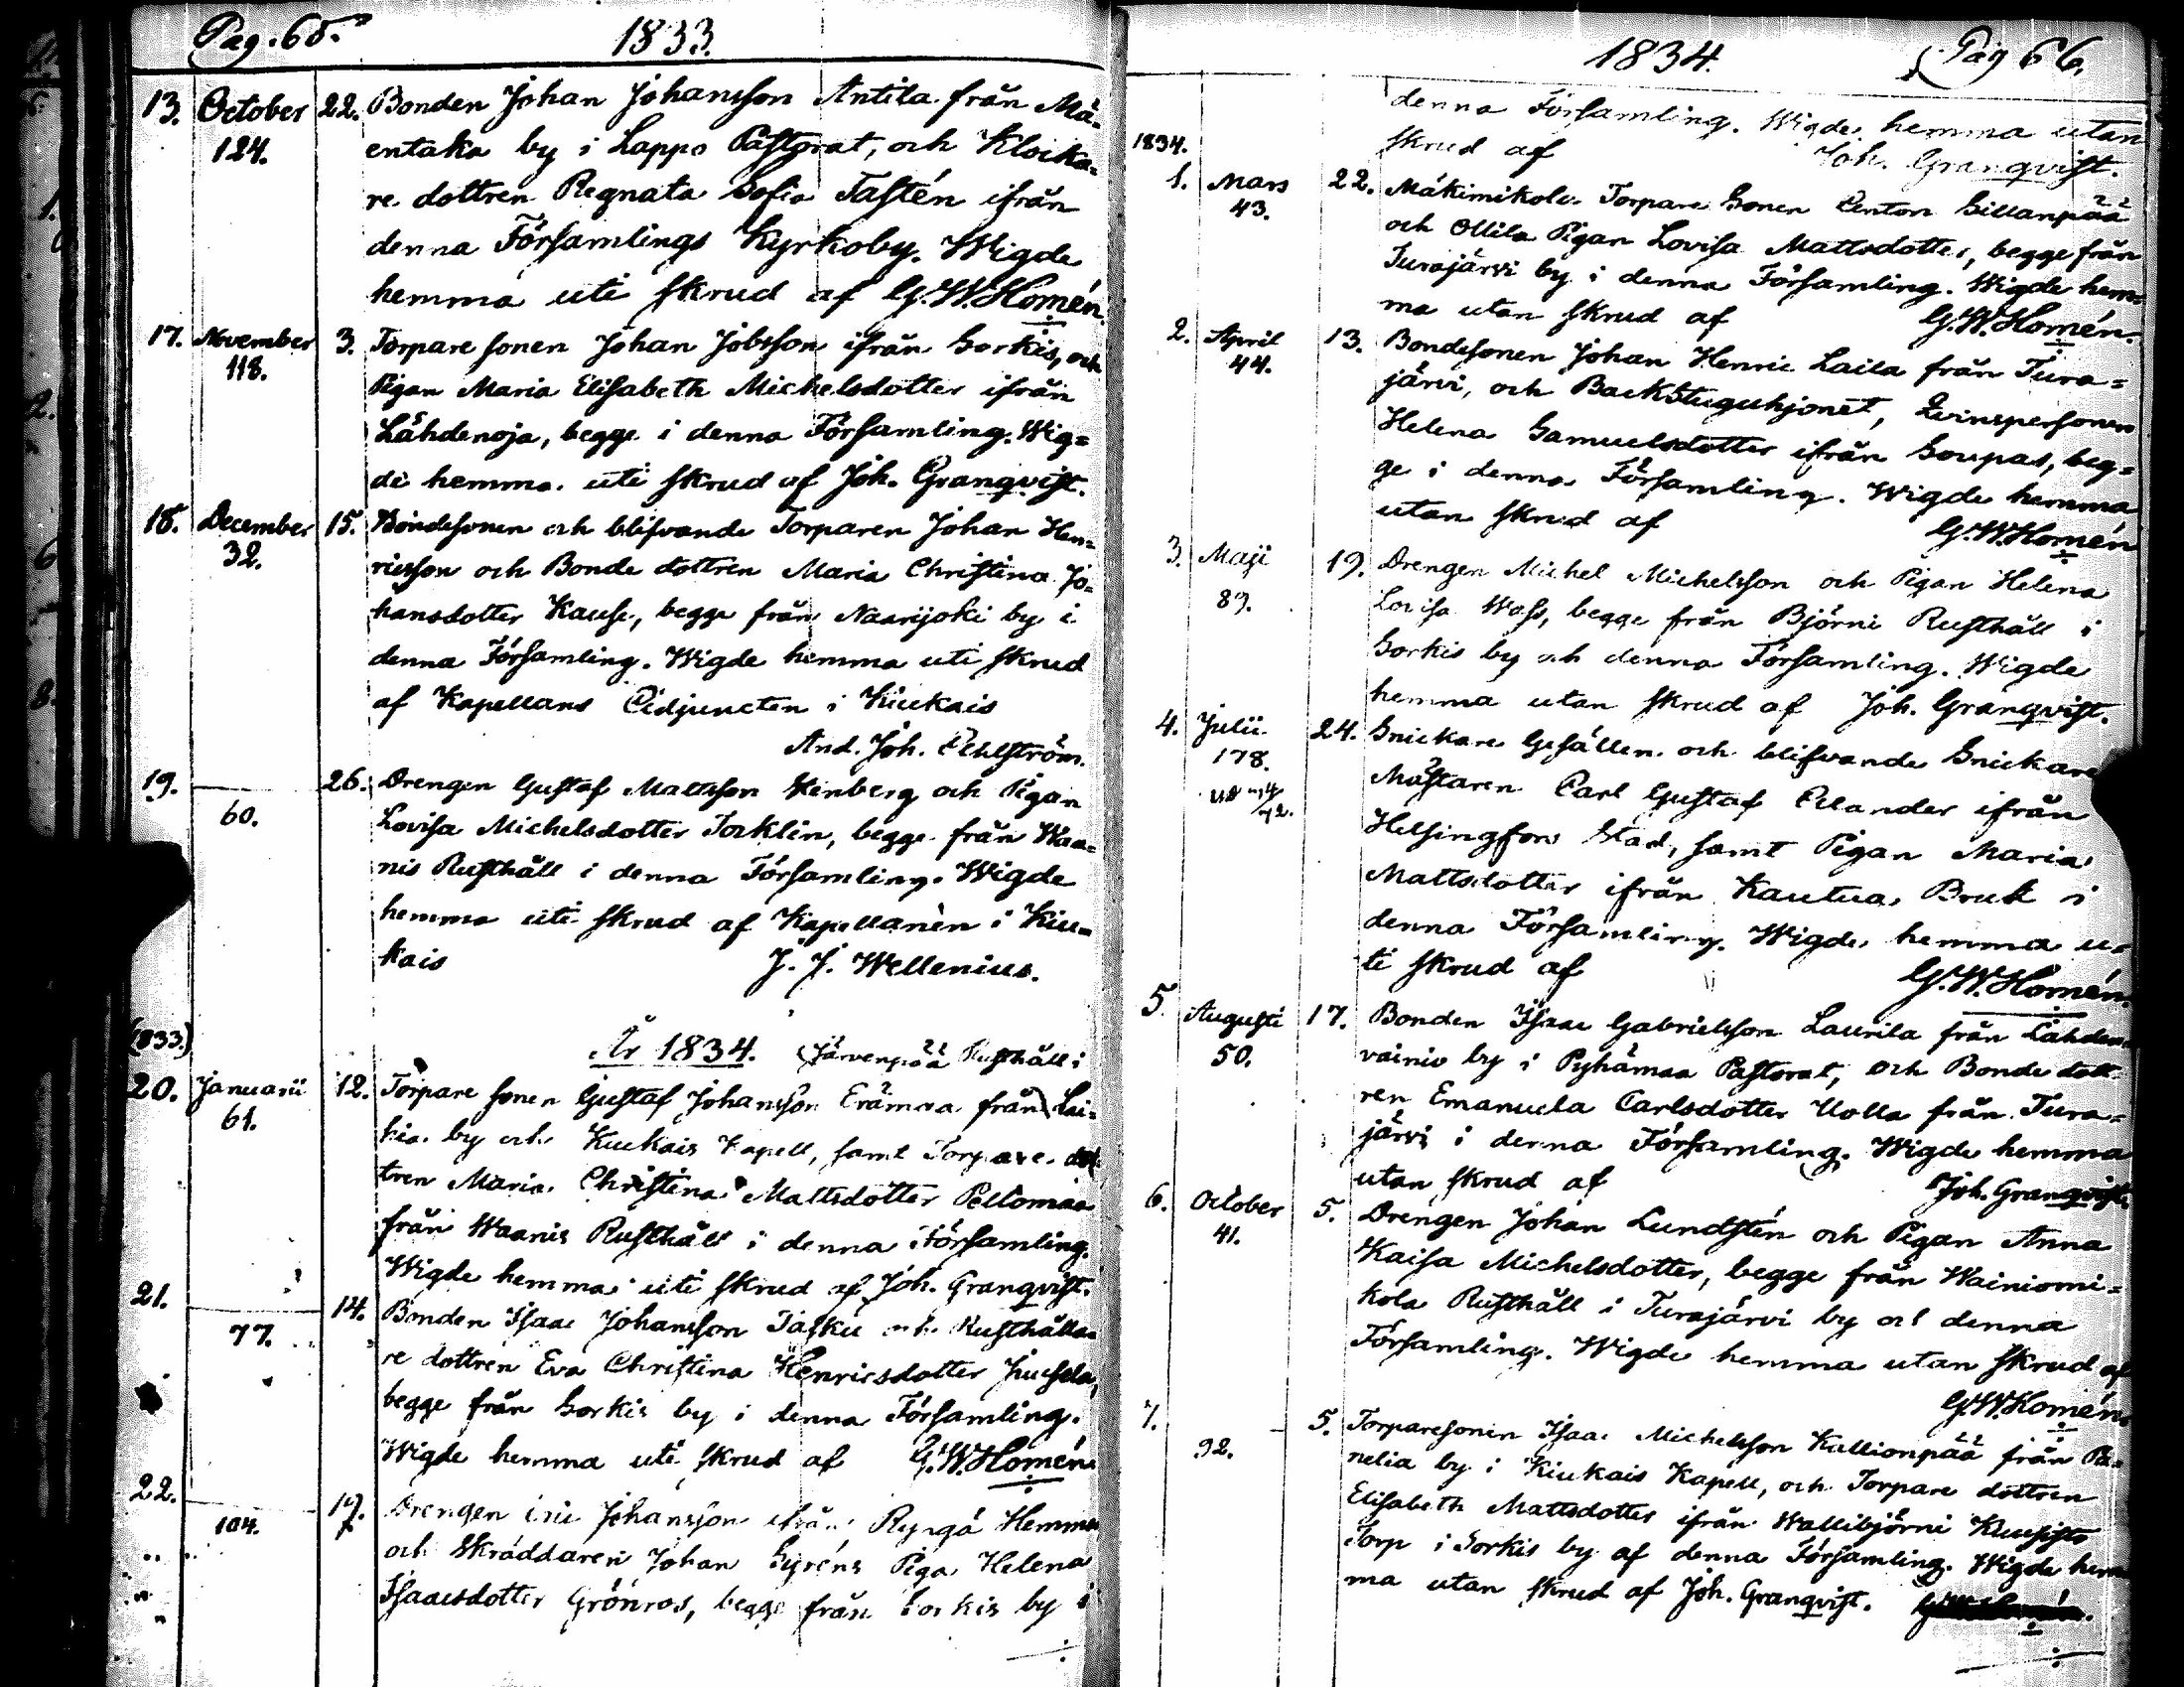 Pag. 65.
1833.
13. October 22. Bonden Johan Johansson Antila från Mä-
124. entaka by i Lappo Pastorat, och Klocka-
re dottren Regnata Sofia Tastén ifrån
denna Församlings Kyrkoby. Wigde
hemma uti skrud af G.W.Homén.
17. November 3. Torpare sonen Johan Jobsson ifrån Sorkis, och
118. Pigan Maria Elisabeth Michelsdotter ifrån
Lähdenoja, begge i denna Församling. Wig=
de hemma uti skrud af Joh. Granqvist.
18. December 15. Bondesonen och blifvande Torparen Johan Hen=
32. ricsson och Bonde dottren Maria Christina Jo=
hansdotter Kause, begge från Naarijoki by i
denna Församling. Wigde hemma uti skrud
af Kapellans Adjuncten i Kiukais
And. Joh. Ahlström.
19. 26. Drengen Gustaf Mattsson Stenberg och Pigan
60. Lovisa Michelsdotter Torklin, begge från Waa=
nis Rusthåll i denna Församling. Wigde
hemma uti skrud af Kapellanen i Kiu=
kais J. J. Wellenius.
(833.)
År 1834. (Järvenpää Rusthåll i
20. Januarii 12. Torpare sonen Gustaf Johansson Erämaa från Lai=
61. kia by och Kiukais Kapell, samt Torpare dot
tren Maria Christina Mattsdotter Peltomaa
från Waanis Rusthåll i denna Församling.
Wigde hemma uti skrud af Joh. Granqvist.
21. 14. Bonden Isaac Johansson Tasku och Rusthålla=
77. re dottren Eva Christina Henricsdotter Juusela,
begge från Sorkis by i denna Församling.
Wigde hemma uti skrud af G.W.Homén
22. 19. Drengen Johansson ifrån Hemma
104. och Skräddaren Johan Syréns Piga Helena
Isaacsdotter Grönros, begge från Sorkis by i
1834. Pag 66.
denna Församling. Wigde hemma utan
1834. skrud af Joh. Granqvist.
1. Mars 22. Mäkimikola Torpare Sonen Anton Sillanpää
43. och Ollila Pigan Lovisa Mattsdotter, begge från
Turajärvi by i denna Församling. Wigde hem=
ma utan skrud af G.W.Homén.
2. April 13. Bondesonen Johan Henric Laila från Tura=
44. järvi, och Backstuguhjonet, Qvinspersonen
Helena Samuelsdotter ifrån Soupas, beg=
ge i denna Församling. Wigde hemma
utan skrud af G.W.Homén
3. Maji 19. Drengen Michel Michelsson och Pigan Helena
89. Lovisa Wass, begge från Björni Rusthåll i
Sorkis by och denna Församling. Wigde
hemma utan skrud af Joh. Granqvist.
4. Julii 24. Snickare Gesällen och blifvande Snickare
178. Mästaren Carl Gustaf Elander ifrån
Helsingfors Stad, samt Pigan Maria
Mattsdotter ifrån Kautua Bruk i
denna Församling. Wigde hemma u=
ti skrud af G.W.Homén.
5. Augusti 17. Bonden Isaac Gabrielsson Laurila från Lahden=
50. vainio by i Pyhämaa Pastorat, och Bonde dott=
ren Emanuela Carlsdotter Uolla från Tura=
järvi i denna Församling. Wigde hemma
utan skrud af Joh. Granqvist.
6. October 5. Drengen Johan Lundstén och Pigan Anna
41. Kaisa Michelsdotter, begge från Wainiomi=
kola Rusthåll i Turajärvi by och denna
Församling. Wigde hemma utan skrud af
G.W.Homén.
7. 5. Torparesonen Isaac Michelsson Kallionpää från Pa=
92. nelia by i Kiukais Kapell, och Torpare dottren
Elisabeth Mattsdotter ifrån Wallibjörni Kuusisto
Torp i Sorkis by af denna Församling. Wigde hem
ma utan skrud af Joh. Granqvist.